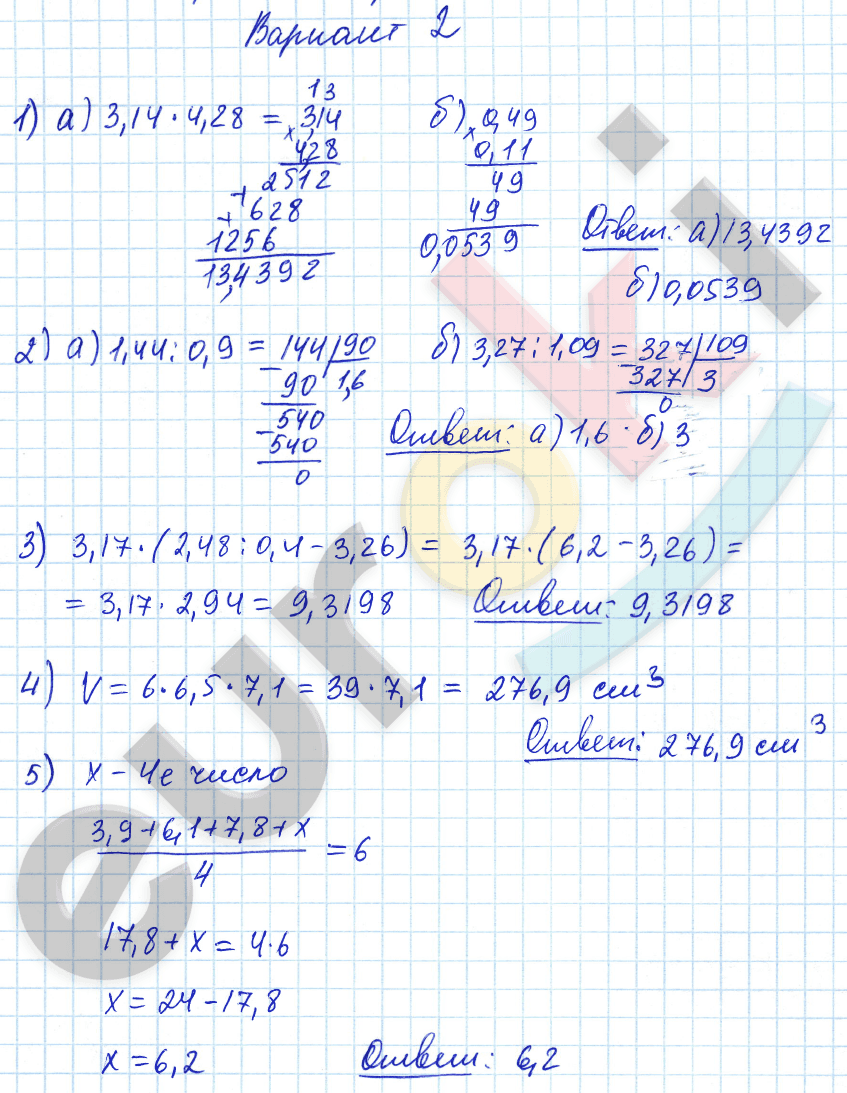 Вариант 2
1) а) 3,14 · 4,28 =
13
× 3,14
4,28
2512
+ 628
+ 1256
13,4392
б) × 0,49
0,11
49
49
0,0539
Ответ: а) 13,4392
б) 0,0539
2) а) 1,44 : 0,9 = 144 | 90
− 90 1,6
− 540
540
0
б) 3,27 : 1,09 = 327 | 109
− 327 | 3
0
Ответ: а) 1,6 · б) 3
3) 3,17 · (2,48 : 0,4 − 3,26) = 3,17 · (6,2 − 3,26) =
= 3,17 · 2,94 = 9,3198 Ответ: 9,3198
4) V = 6 · 6,5 · 7,1 = 39 · 7,1 = 276,9 см³
Ответ: 276,9 см³
5) x − 4е число
3,9 + 6,1 + 7,8 + x
4
= 6
17,8 + x = 4 · 6
x = 24 − 17,8
x = 6,2 Ответ: 6,2
euroki